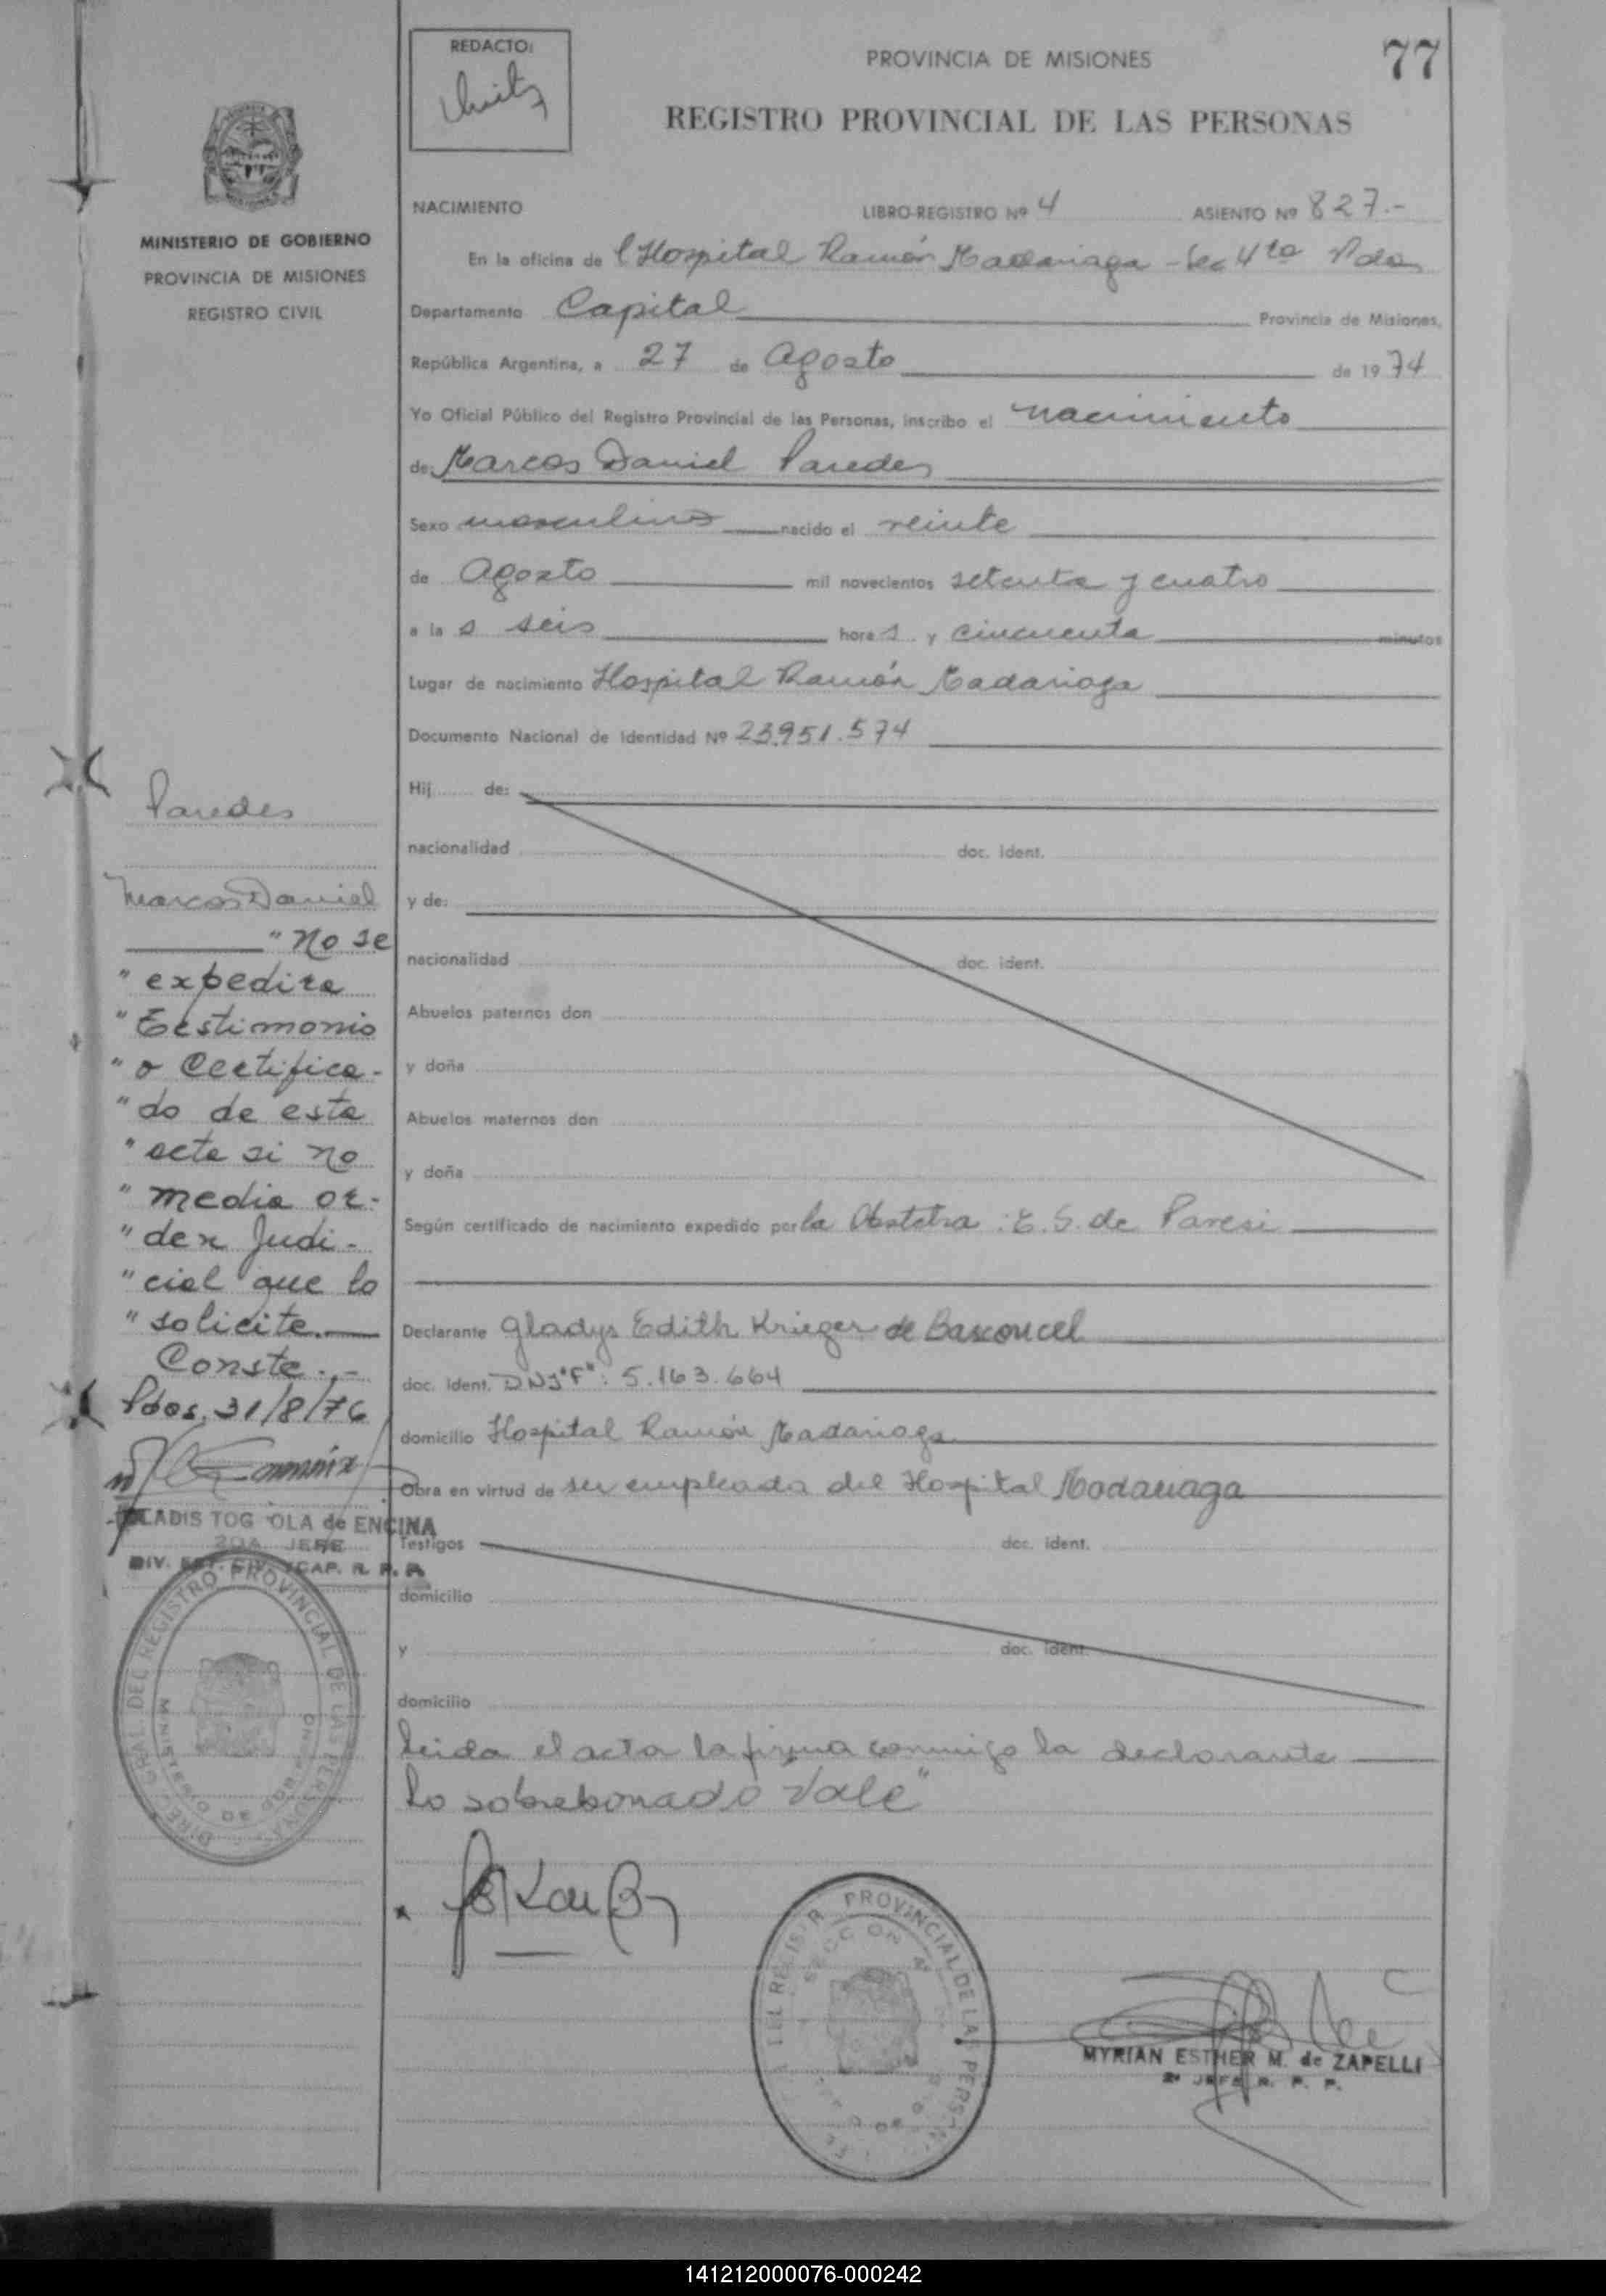 77
REDACTO:
PROVINCIA DE MISIONES
REGISTRO PROVINCIAL DE LAS PERSONAS
MINISTERIO DE GOBIERNO
PROVINCIA DE MISIONES
REGISTRO CIVIL
NACIMIENTO LIBRO-REGISTRO Nº 4 ASIENTO Nº 827.-
En la oficina de l Hospital Ramón Madariaga - Sec 4ta Pdas
Departamento Capital Provincia de Misiones,
República Argentina, a 27 de Agosto de 1974
Yo Oficial Público del Registro Provincial de las Personas, inscribo el nacimiento
de: Marcos Daniel Paredes
Sexo masculino nacido el veinte
de Agosto mil novecientos setenta y cuatro
a la s seis hora s y cincuenta minutos
Lugar de nacimiento Hospital Ramón Madariaga
Documento Nacional de Identidad Nº 23.951.574
Hij de:
nacionalidad doc. ident.
y de:
nacionalidad doc. ident.
Abuelos paternos don
y doña
Abuelos maternos don
y doña
Según certificado de nacimiento expedido por la Obstetra : E. S. de Paresi
Declarante Gladys Edith Krieger de Basconcel
doc. ident. DNI"F": 5.163.664
domicilio Hospital Ramón Madariaga
Obra en virtud de ser empleada del Hospital Madariaga
Testigos doc. ident.
domicilio
y doc. ident.
domicilio
Leida el acta la firma conmigo la declarante
Lo sobreborrado Vale"
Paredes
Marcos Daniel
"No se
"expedira
"Testimonio
"o Certifica-
"do de esta
"acta si no
"media or-
"den Judi-
"cial que lo
"solicite.
Conste.-
Pdas, 31/8/76
GLADIS TOG OLA de ENCINA
2DA. JEFE
DIV. CAP. R. P. P.
DIREC. GRAL. DEL REGISTRO PROVINCIAL DE LAS PERSONAS
MINISTERIO DE GOBIERNO
PROVINCIAL DE LAS PERSONAS
MYRIAN ESTHER M. de ZAPELLI
2º JEFE R. P. P.
141212000076-000242